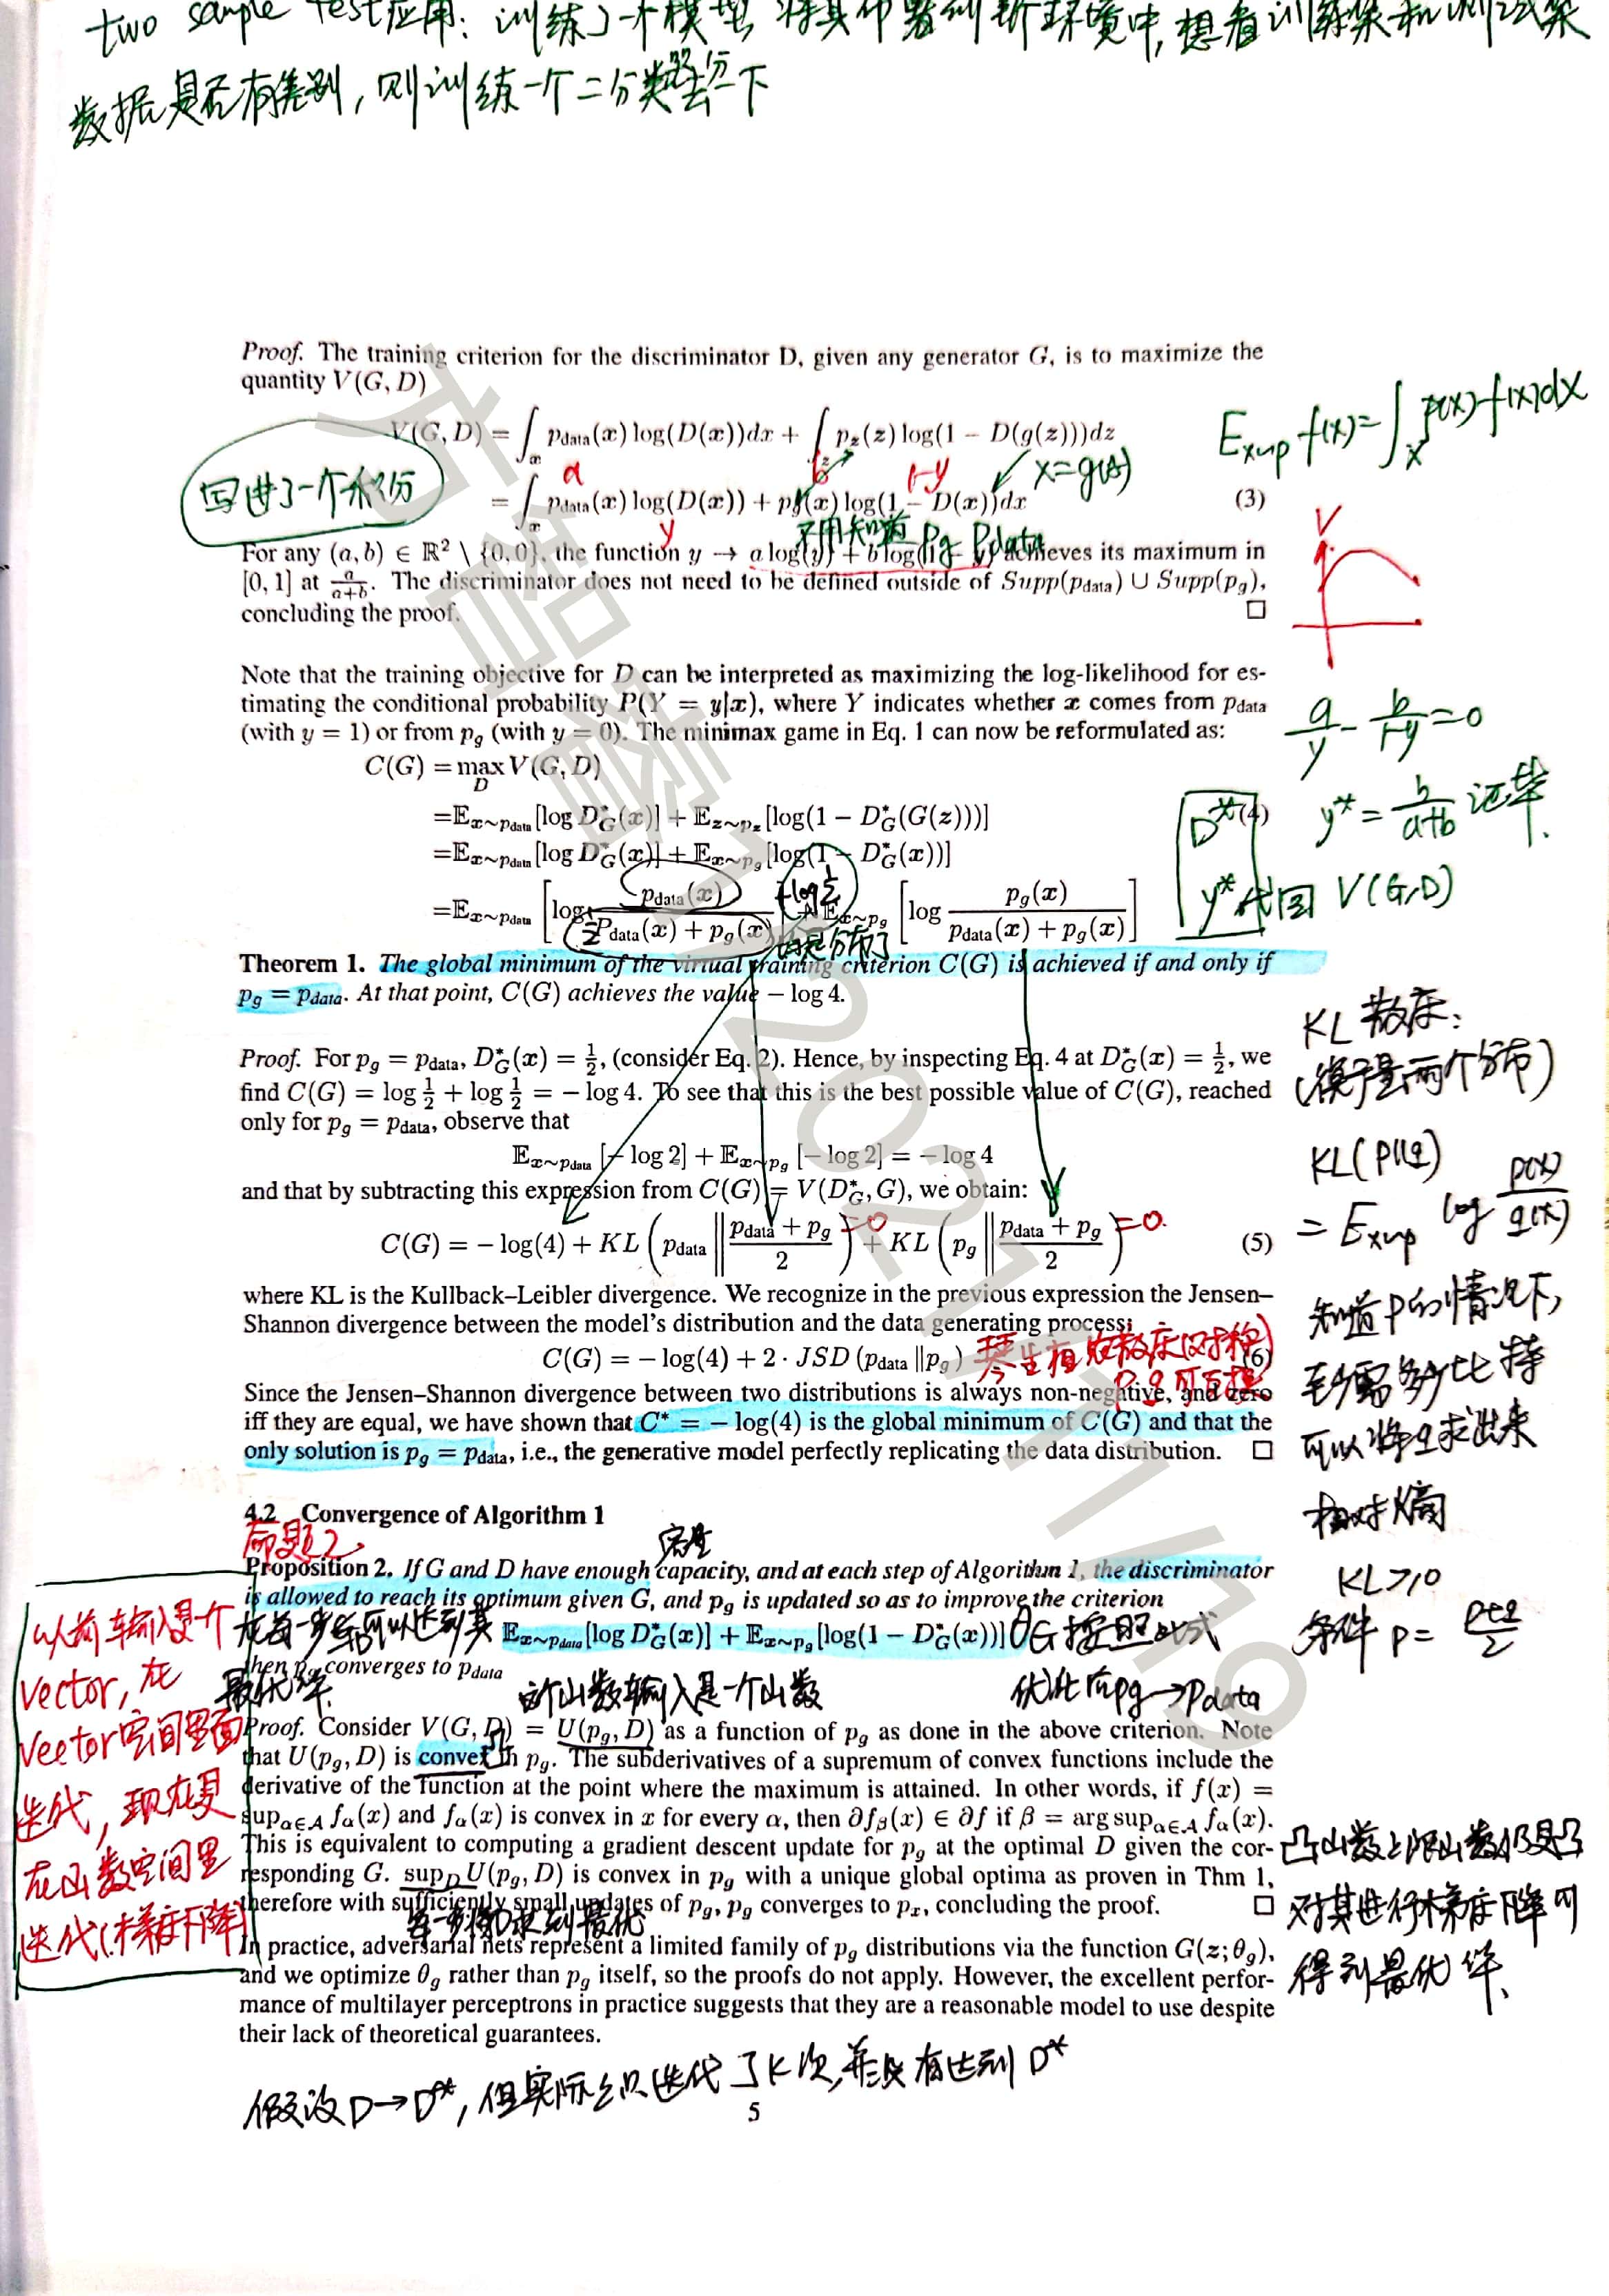 two sample test应用: 训练了一个模型, 将其部署到新环境中, 想看训练集和测试集
数据是否有差别, 则训练一个二分类器去分一下
Proof. The training criterion for the discriminator D, given any generator G, is to maximize the
quantity V(G, D)
V(G, D) = ∫ₓ p_data(x) log(D(x))dx + ∫_z p_z(z) log(1 − D(g(z)))dz
E_{x∼p} f(x) = ∫ₓ p(x)f(x)dx
写进了一个积分
a
b
1-y
x=g(z)
= ∫ₓ p_data(x) log(D(x)) + p_g(x) log(1 − D(x))dx
(3)
y
不用知道 Pg Pdata
V
For any (a, b) ∈ ℝ² \ {0, 0}, the function y → a log(y) + b log(1 − y) achieves its maximum in
[0, 1] at a/(a+b). The discriminator does not need to be defined outside of Supp(p_data) ∪ Supp(p_g),
concluding the proof. □
Note that the training objective for D can be interpreted as maximizing the log-likelihood for es-
timating the conditional probability P(Y = y|x), where Y indicates whether x comes from p_data
(with y = 1) or from p_g (with y = 0). The minimax game in Eq. 1 can now be reformulated as:
a/y - b/(1-y) = 0
y* = b/(a+b) 证毕.
C(G) = max_D V(G, D)
=𝔼_{x∼p_data}[log D*_G(x)] + 𝔼_{z∼p_z}[log(1 − D*_G(G(z)))]
(4)
D*
=𝔼_{x∼p_data}[log D*_G(x)] + 𝔼_{x∼p_g}[log(1 − D*_G(x))]
y* 代回 V(G,D)
=𝔼_{x∼p_data}[log p_data(x)/(P_data(x) + p_g(x))] + 𝔼_{x∼p_g}[log p_g(x)/(p_data(x) + p_g(x))]
1/2
+log 1/2
均是分布了
Theorem 1. The global minimum of the virtual training criterion C(G) is achieved if and only if
p_g = p_data. At that point, C(G) achieves the value − log 4.
Proof. For p_g = p_data, D*_G(x) = 1/2, (consider Eq. 2). Hence, by inspecting Eq. 4 at D*_G(x) = 1/2, we
find C(G) = log 1/2 + log 1/2 = − log 4. To see that this is the best possible value of C(G), reached
only for p_g = p_data, observe that
𝔼_{x∼p_data}[− log 2] + 𝔼_{x∼p_g}[− log 2] = − log 4
and that by subtracting this expression from C(G) = V(D*_G, G), we obtain:
C(G) = − log(4) + KL(p_data ‖ (p_data + p_g)/2) + KL(p_g ‖ (p_data + p_g)/2)
(5)
=0
=0
where KL is the Kullback–Leibler divergence. We recognize in the previous expression the Jensen–
Shannon divergence between the model's distribution and the data generating process:
C(G) = − log(4) + 2 · JSD(p_data ‖p_g)
(6)
散度(对称)
p q 可互换
Since the Jensen–Shannon divergence between two distributions is always non-negative, and zero
iff they are equal, we have shown that C* = − log(4) is the global minimum of C(G) and that the
only solution is p_g = p_data, i.e., the generative model perfectly replicating the data distribution. □
KL 散度:
(衡量两个分布)
KL(p||q)
= E_{x∼p} log p(x)/q(x)
知道p的情况下,
至少需多少比特
可以将q求出来
相对熵
KL≥0
条件 p = (p+q)/2
4.2 Convergence of Algorithm 1
命题2
容量
Proposition 2. If G and D have enough capacity, and at each step of Algorithm 1, the discriminator
is allowed to reach its optimum given G, and p_g is updated so as to improve the criterion
𝔼_{x∼p_data}[log D*_G(x)] + 𝔼_{x∼p_g}[log(1 − D*_G(x))]
在每一步后可以达到其
最优解.
G按照此式
优化后pg→Pdata
then p_g converges to p_data
这个函数输入是一个函数
以前输入是个
vector, 在
vector空间里面
迭代, 现在是
在函数空间里
迭代(梯度下降)
Proof. Consider V(G, D) = U(p_g, D) as a function of p_g as done in the above criterion. Note
that U(p_g, D) is convex in p_g. The subderivatives of a supremum of convex functions include the
凸
derivative of the function at the point where the maximum is attained. In other words, if f(x) =
sup_{α∈A} f_α(x) and f_α(x) is convex in x for every α, then ∂f_β(x) ∈ ∂f if β = arg sup_{α∈A} f_α(x).
This is equivalent to computing a gradient descent update for p_g at the optimal D given the cor-
responding G. sup_D U(p_g, D) is convex in p_g with a unique global optima as proven in Thm 1,
therefore with sufficiently small updates of p_g, p_g converges to p_x, concluding the proof. □
每一步将D求到最优
凸函数上限函数仍是凸
对其进行梯度下降可
得到最优解.
In practice, adversarial nets represent a limited family of p_g distributions via the function G(z; θ_g),
and we optimize θ_g rather than p_g itself, so the proofs do not apply. However, the excellent perfor-
mance of multilayer perceptrons in practice suggests that they are a reasonable model to use despite
their lack of theoretical guarantees.
假设D→D*, 但实际只迭代了K次, 并没有达到D*
5